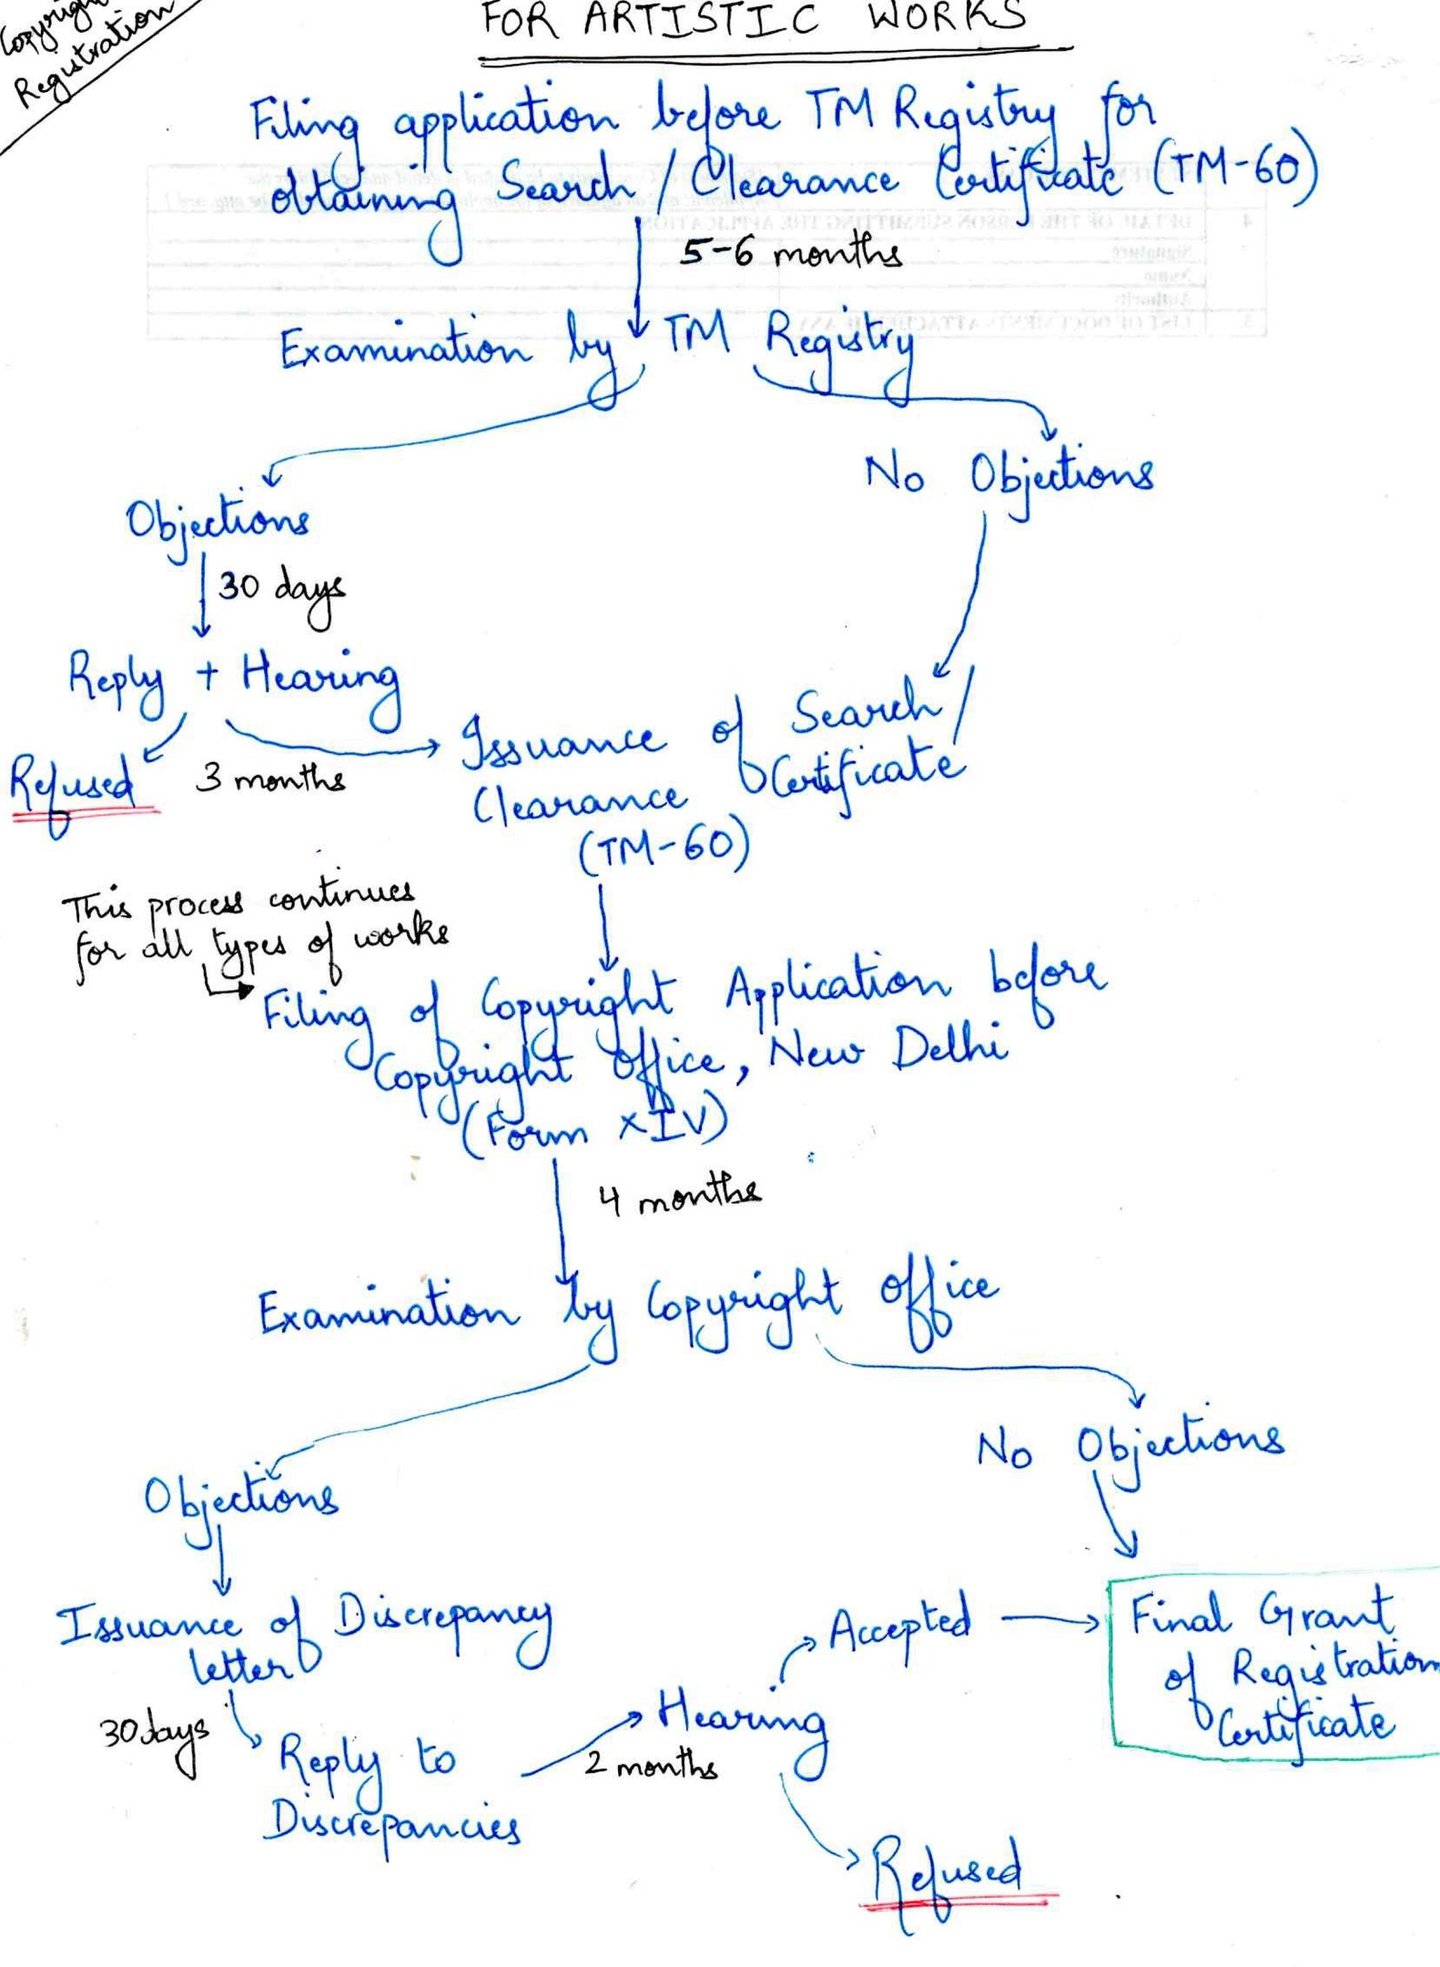 Copyright
Registration
FOR ARTISTIC WORKS
Filing application before TM Registry for
obtaining Search / Clearance Certificate (TM-60)
5-6 months
Examination by TM Registry
No Objections
Objections
30 days
Reply + Hearing
Refused
3 months
Issuance of Search /
Clearance Certificate
(TM-60)
This process continues
for all types of works
Filing of Copyright Application before
Copyright Office, New Delhi
(Form XIV)
4 months
Examination by Copyright Office
No Objections
Objections
Issuance of Discrepancy
letter
30 days
Reply to
Discrepancies
2 months
Hearing
Accepted
Final Grant
of Registration
Certificate
Refused